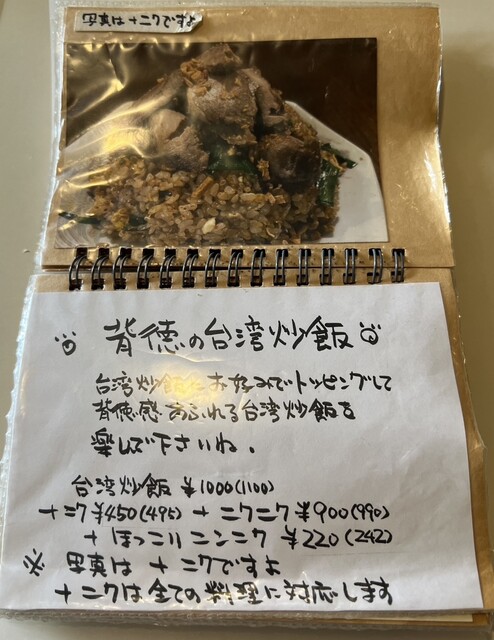 写真は+ニクですよ
背徳の台湾炒飯
台湾炒飯にお好みでトッピングして
背徳感あふれる台湾炒飯を
楽しんで下さいね。
台湾炒飯 ¥1000(1100)
+ニク¥450(495) +ニクニク¥900(990)
+ほっこりニンニク ¥220(242)
※ 写真は+ニクですよ
+ニクは全ての料理に対応します